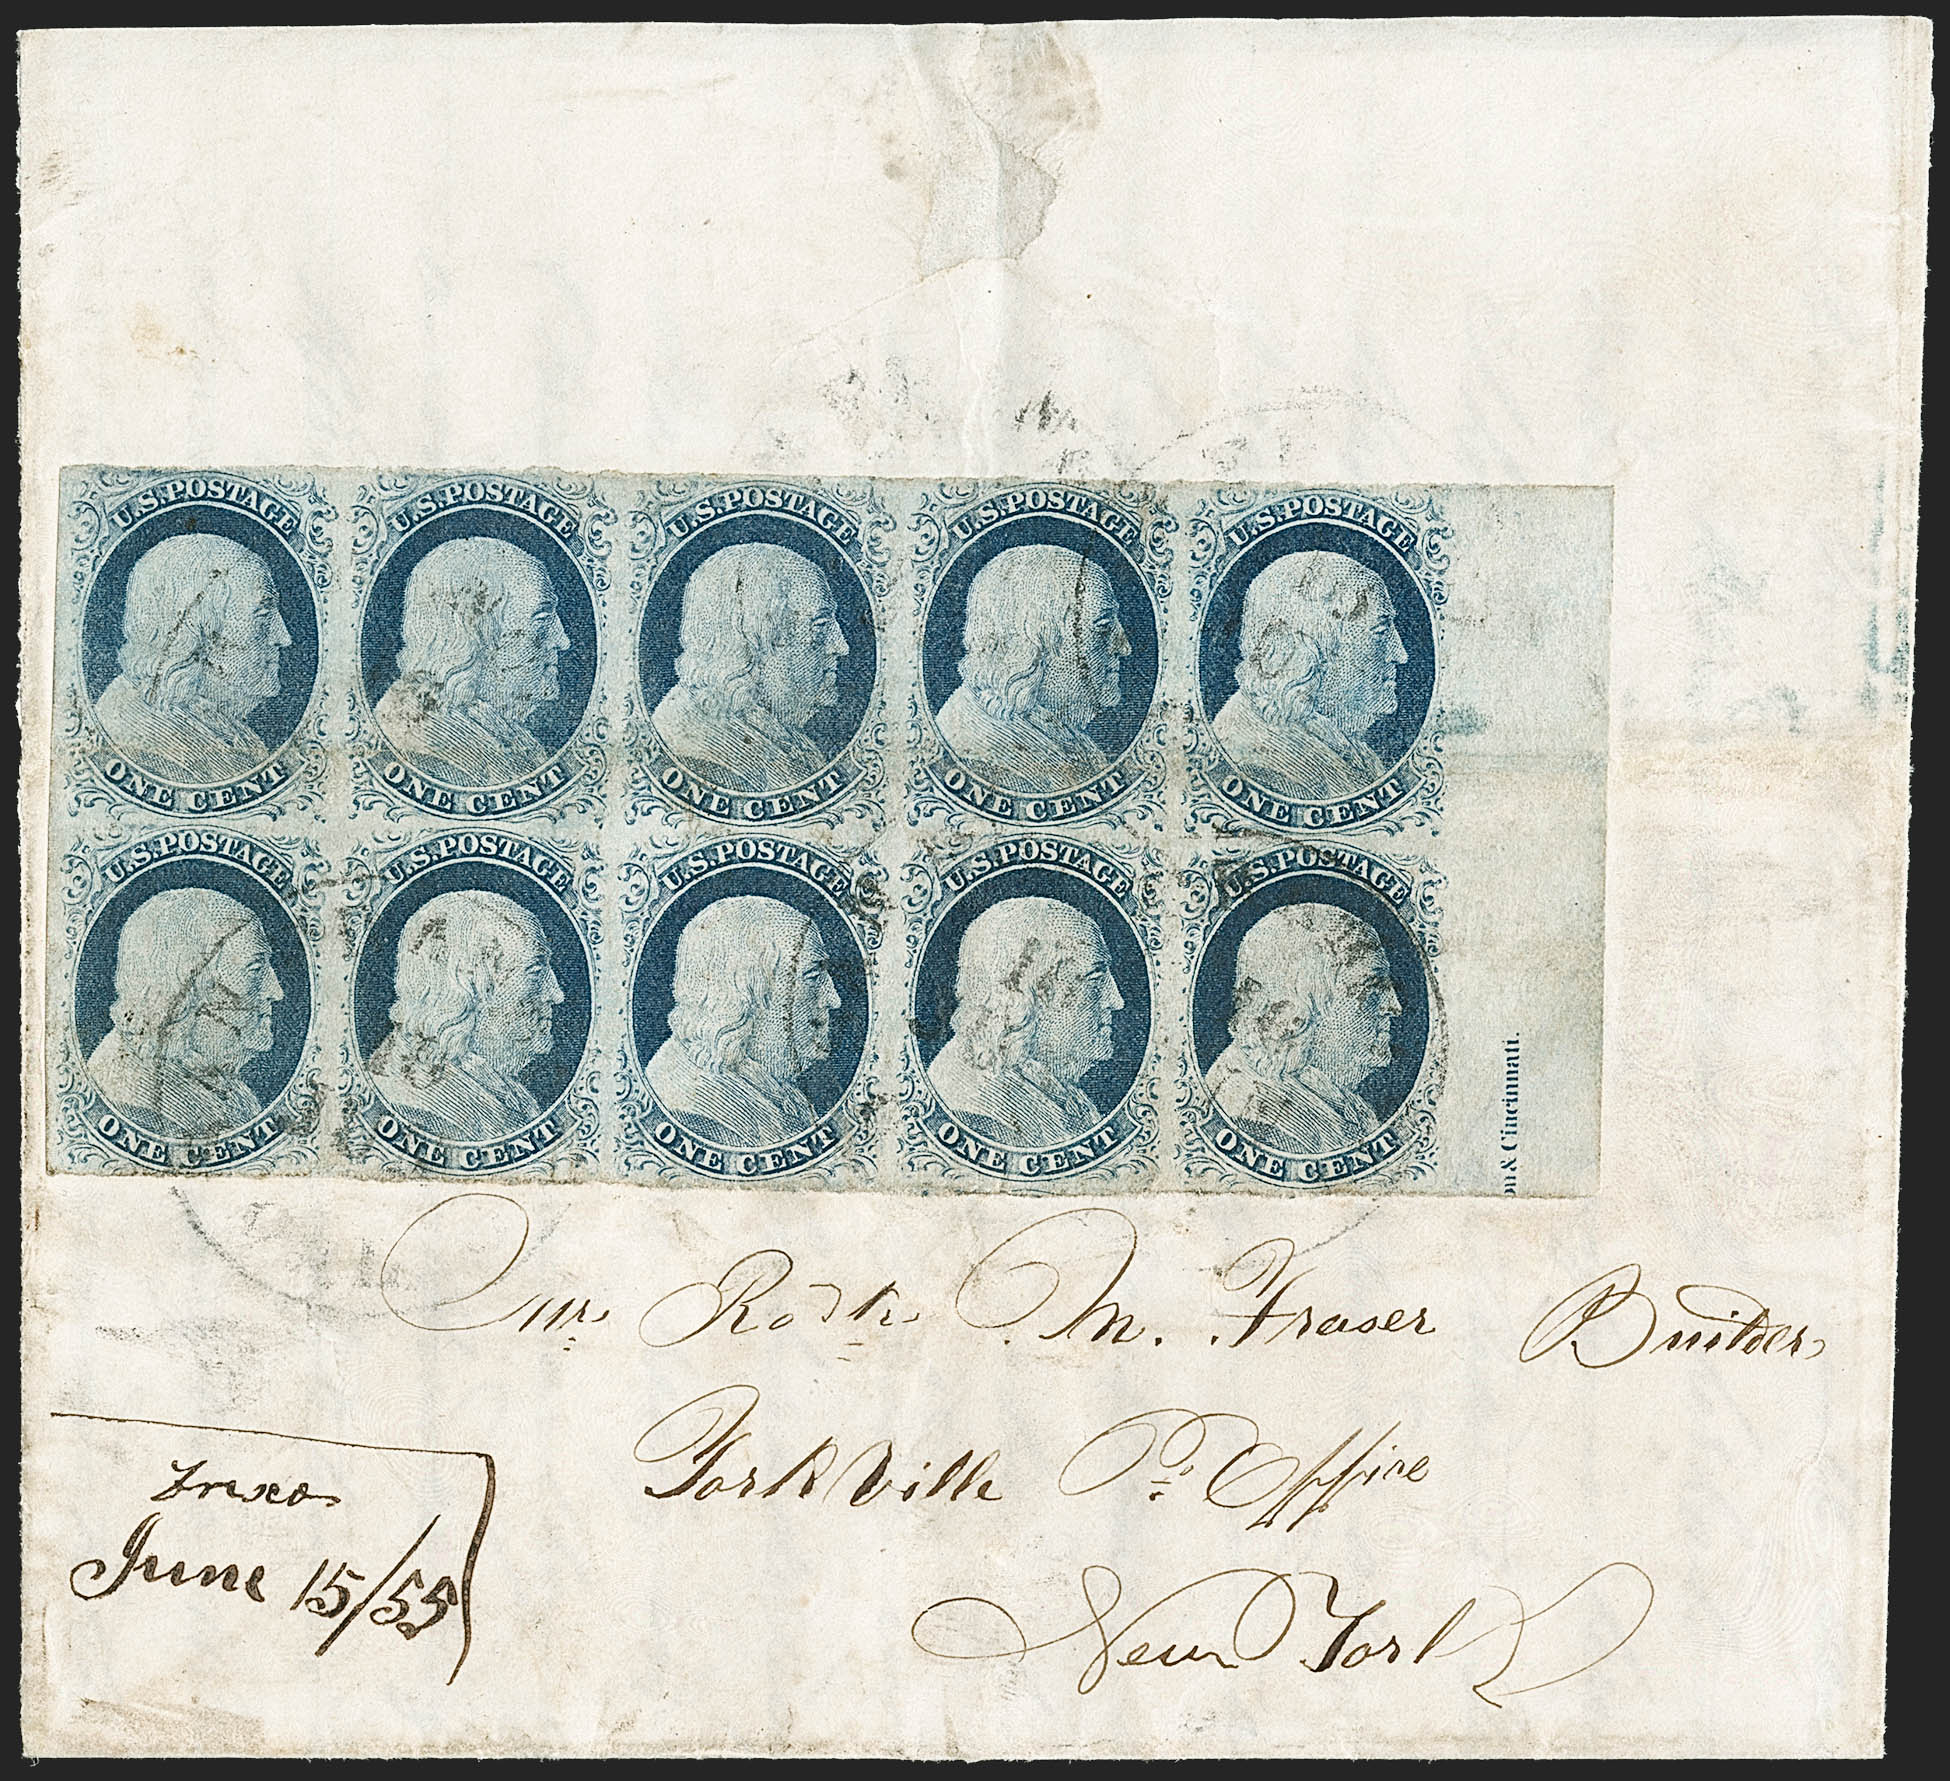 U.S.POSTAGE U.S.POSTAGE U.S.POSTAGE U.S.POSTAGE U.S.POSTAGE
ONE CENT ONE CENT ONE CENT ONE CENT ONE CENT
U.S.POSTAGE U.S.POSTAGE U.S.POSTAGE U.S.POSTAGE U.S.POSTAGE
ONE CENT ONE CENT ONE CENT ONE CENT ONE CENT
& Cincinnati.
Mr. M. Fraser Builder
YorkVille P.o Office
New York
June 15/55